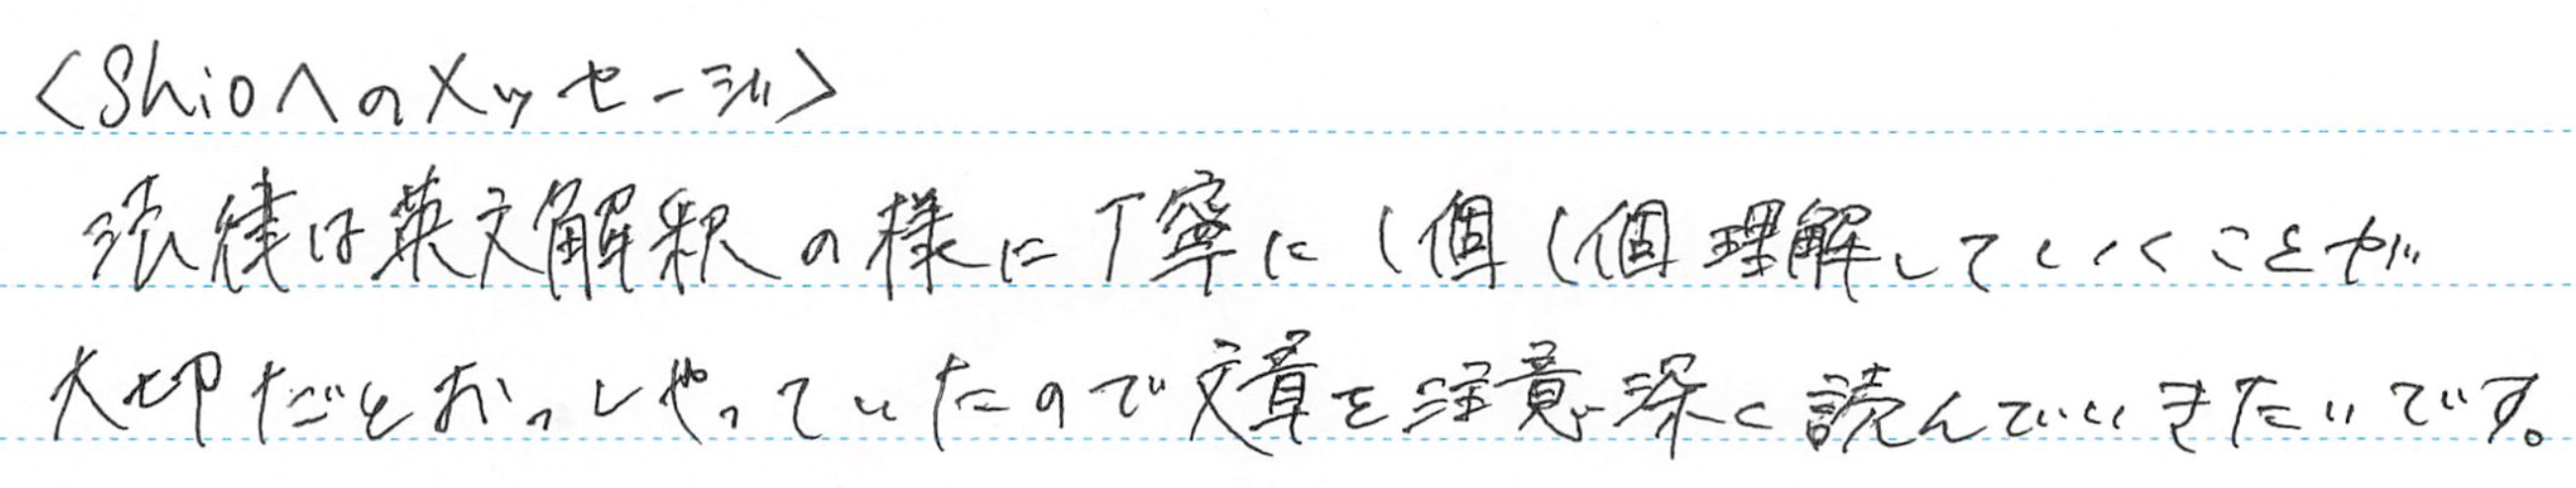 <Shioへのメッセージ>
法律は英文解釈の様に丁寧に1個1個理解していくことが
大切だとおっしゃっていたので文章を注意深く読んでいきたいです。